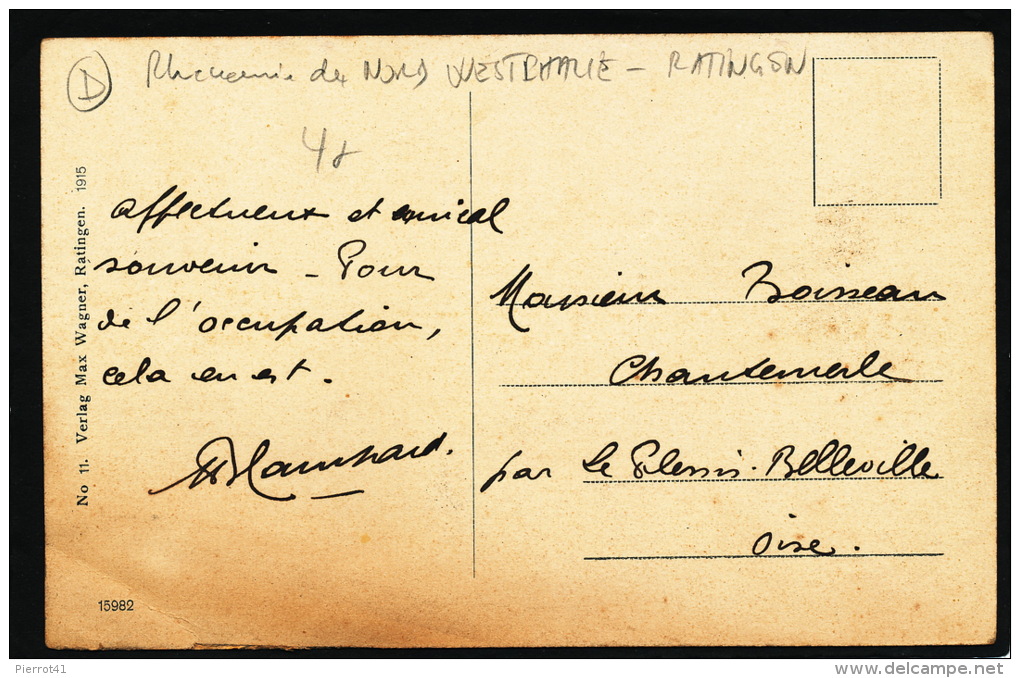 D
Rhenanie du NORD WESTPHALIE - RATINGEN
4
No 11. Verlag Max Wagner, Ratingen. 1915
affectueux et amical
souvenir - Pour
de l'occupation,
cela en est.
Monsieur Boisseau
Chantemerle
par Le Plessis-Belleville
Oise.
15982
Pierrot41
www.delcampe.net